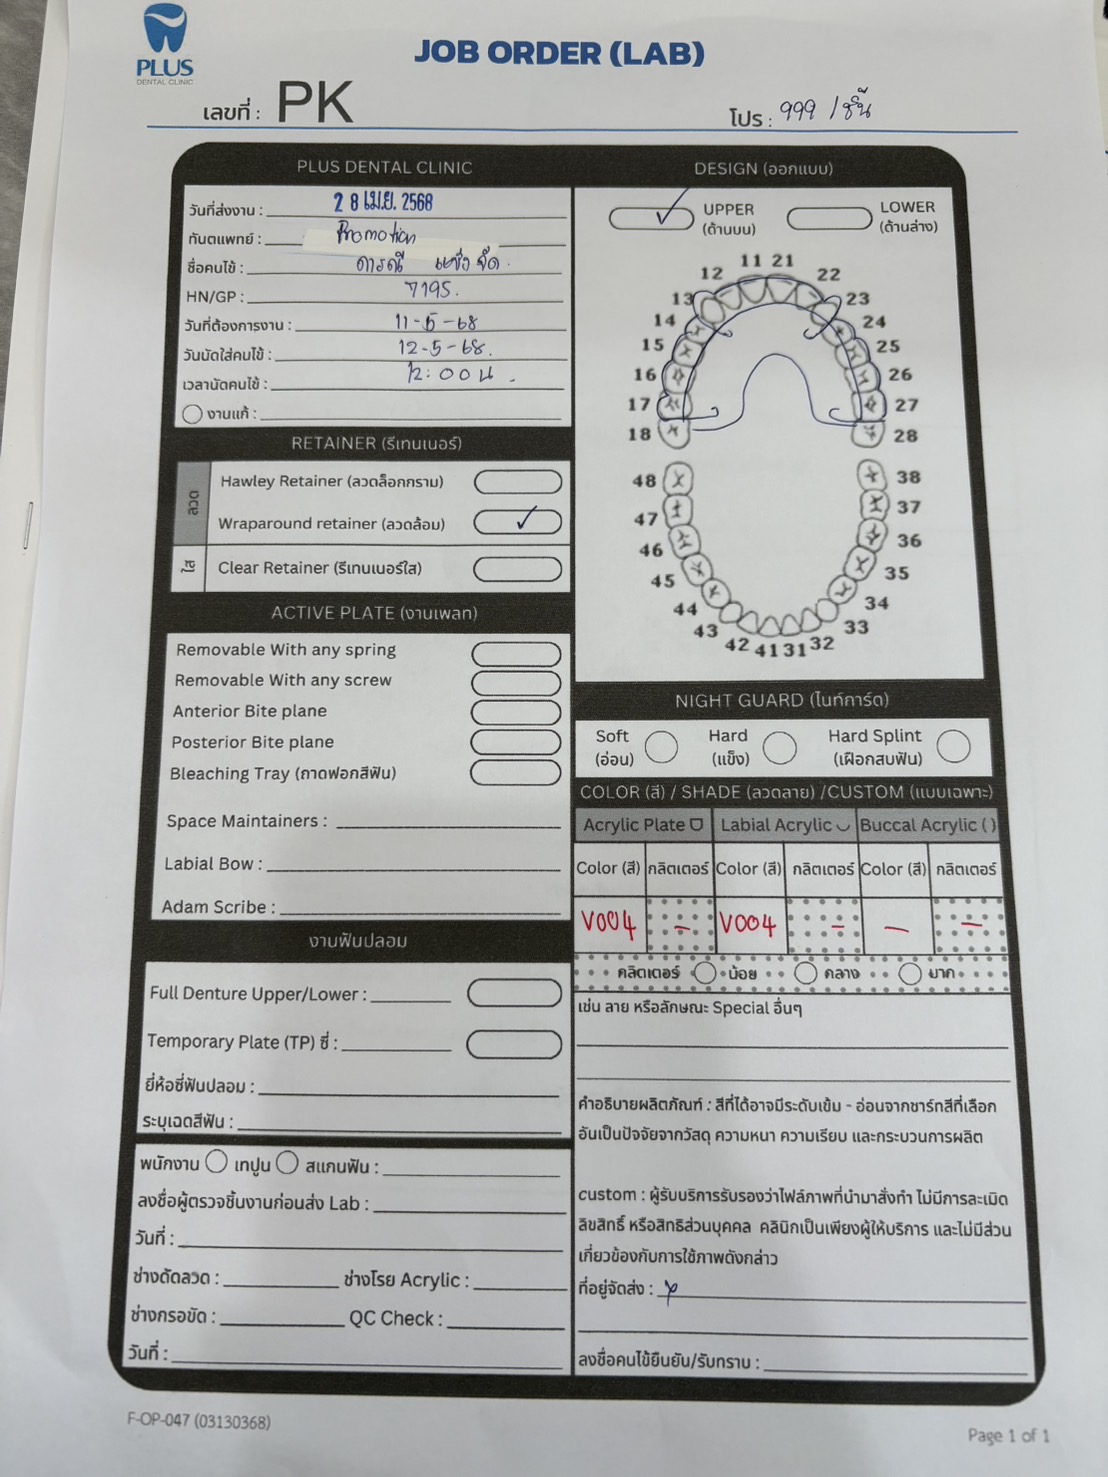 PLUS
DENTAL CLINIC
JOB ORDER (LAB)
เลขที่ : PK
โปร : 999 /ชิ้น
PLUS DENTAL CLINIC
วันที่ส่งงาน : 28 เม.ย. 2568
ทันตแพทย์ : Promotion
ชื่อคนไข้ :
HN/GP : 7195.
วันที่ต้องการงาน : 11-5-68
วันนัดใส่คนไข้ : 12-5-68.
เวลานัดคนไข้ : 12:00 น.
งานแก้ :
RETAINER (รีเทนเนอร์)
ลวด
Hawley Retainer (ลวดล็อกกราม)
Wraparound retainer (ลวดล้อม) ✓
ใส
Clear Retainer (รีเทนเนอร์ใส)
ACTIVE PLATE (งานเพลท)
Removable With any spring
Removable With any screw
Anterior Bite plane
Posterior Bite plane
Bleaching Tray (ถาดฟอกสีฟัน)
Space Maintainers :
Labial Bow :
Adam Scribe :
งานฟันปลอม
Full Denture Upper/Lower :
Temporary Plate (TP) ซี่ :
ยี่ห้อซี่ฟันปลอม :
ระบุเฉดสีฟัน :
พนักงาน เทปูน สแกนฟัน :
ลงชื่อผู้ตรวจชิ้นงานก่อนส่ง Lab :
วันที่ :
ช่างดัดลวด : ช่างโรย Acrylic :
ช่างกรอขัด : QC Check :
วันที่ :
DESIGN (ออกแบบ)
✓ UPPER LOWER
(ด้านบน) (ด้านล่าง)
11 21
12 22
13 23
14 24
15 25
16 26
17 27
18 28
48 38
47 37
46 36
45 35
44 34
43 33
42 41 31 32
NIGHT GUARD (ไนท์การ์ด)
Soft Hard Hard Splint
(อ่อน) (แข็ง) (เฝือกสบฟัน)
COLOR (สี) / SHADE (ลวดลาย) /CUSTOM (แบบเฉพาะ)
Acrylic Plate Labial Acrylic Buccal Acrylic ( )
Color (สี) กลิตเตอร์ Color (สี) กลิตเตอร์ Color (สี) กลิตเตอร์
V004 - V004 - - -
กลิตเตอร์ น้อย กลาง มาก
เช่น ลาย หรือลักษณะ Special อื่นๆ
คำอธิบายผลิตภัณฑ์ : สีที่ได้อาจมีระดับเข้ม - อ่อนจากชาร์ทสีที่เลือก
อันเป็นปัจจัยจากวัสดุ ความหนา ความเรียบ และกระบวนการผลิต
custom : ผู้รับบริการรับรองว่าไฟล์ภาพที่นำมาสั่งทำ ไม่มีการละเมิด
ลิขสิทธิ์ หรือสิทธิส่วนบุคคล คลินิกเป็นเพียงผู้ให้บริการ และไม่มีส่วน
เกี่ยวข้องกับการใช้ภาพดังกล่าว
ที่อยู่จัดส่ง :
ลงชื่อคนไข้ยืนยัน/รับทราบ :
F-OP-047 (03130368)
Page 1 of 1